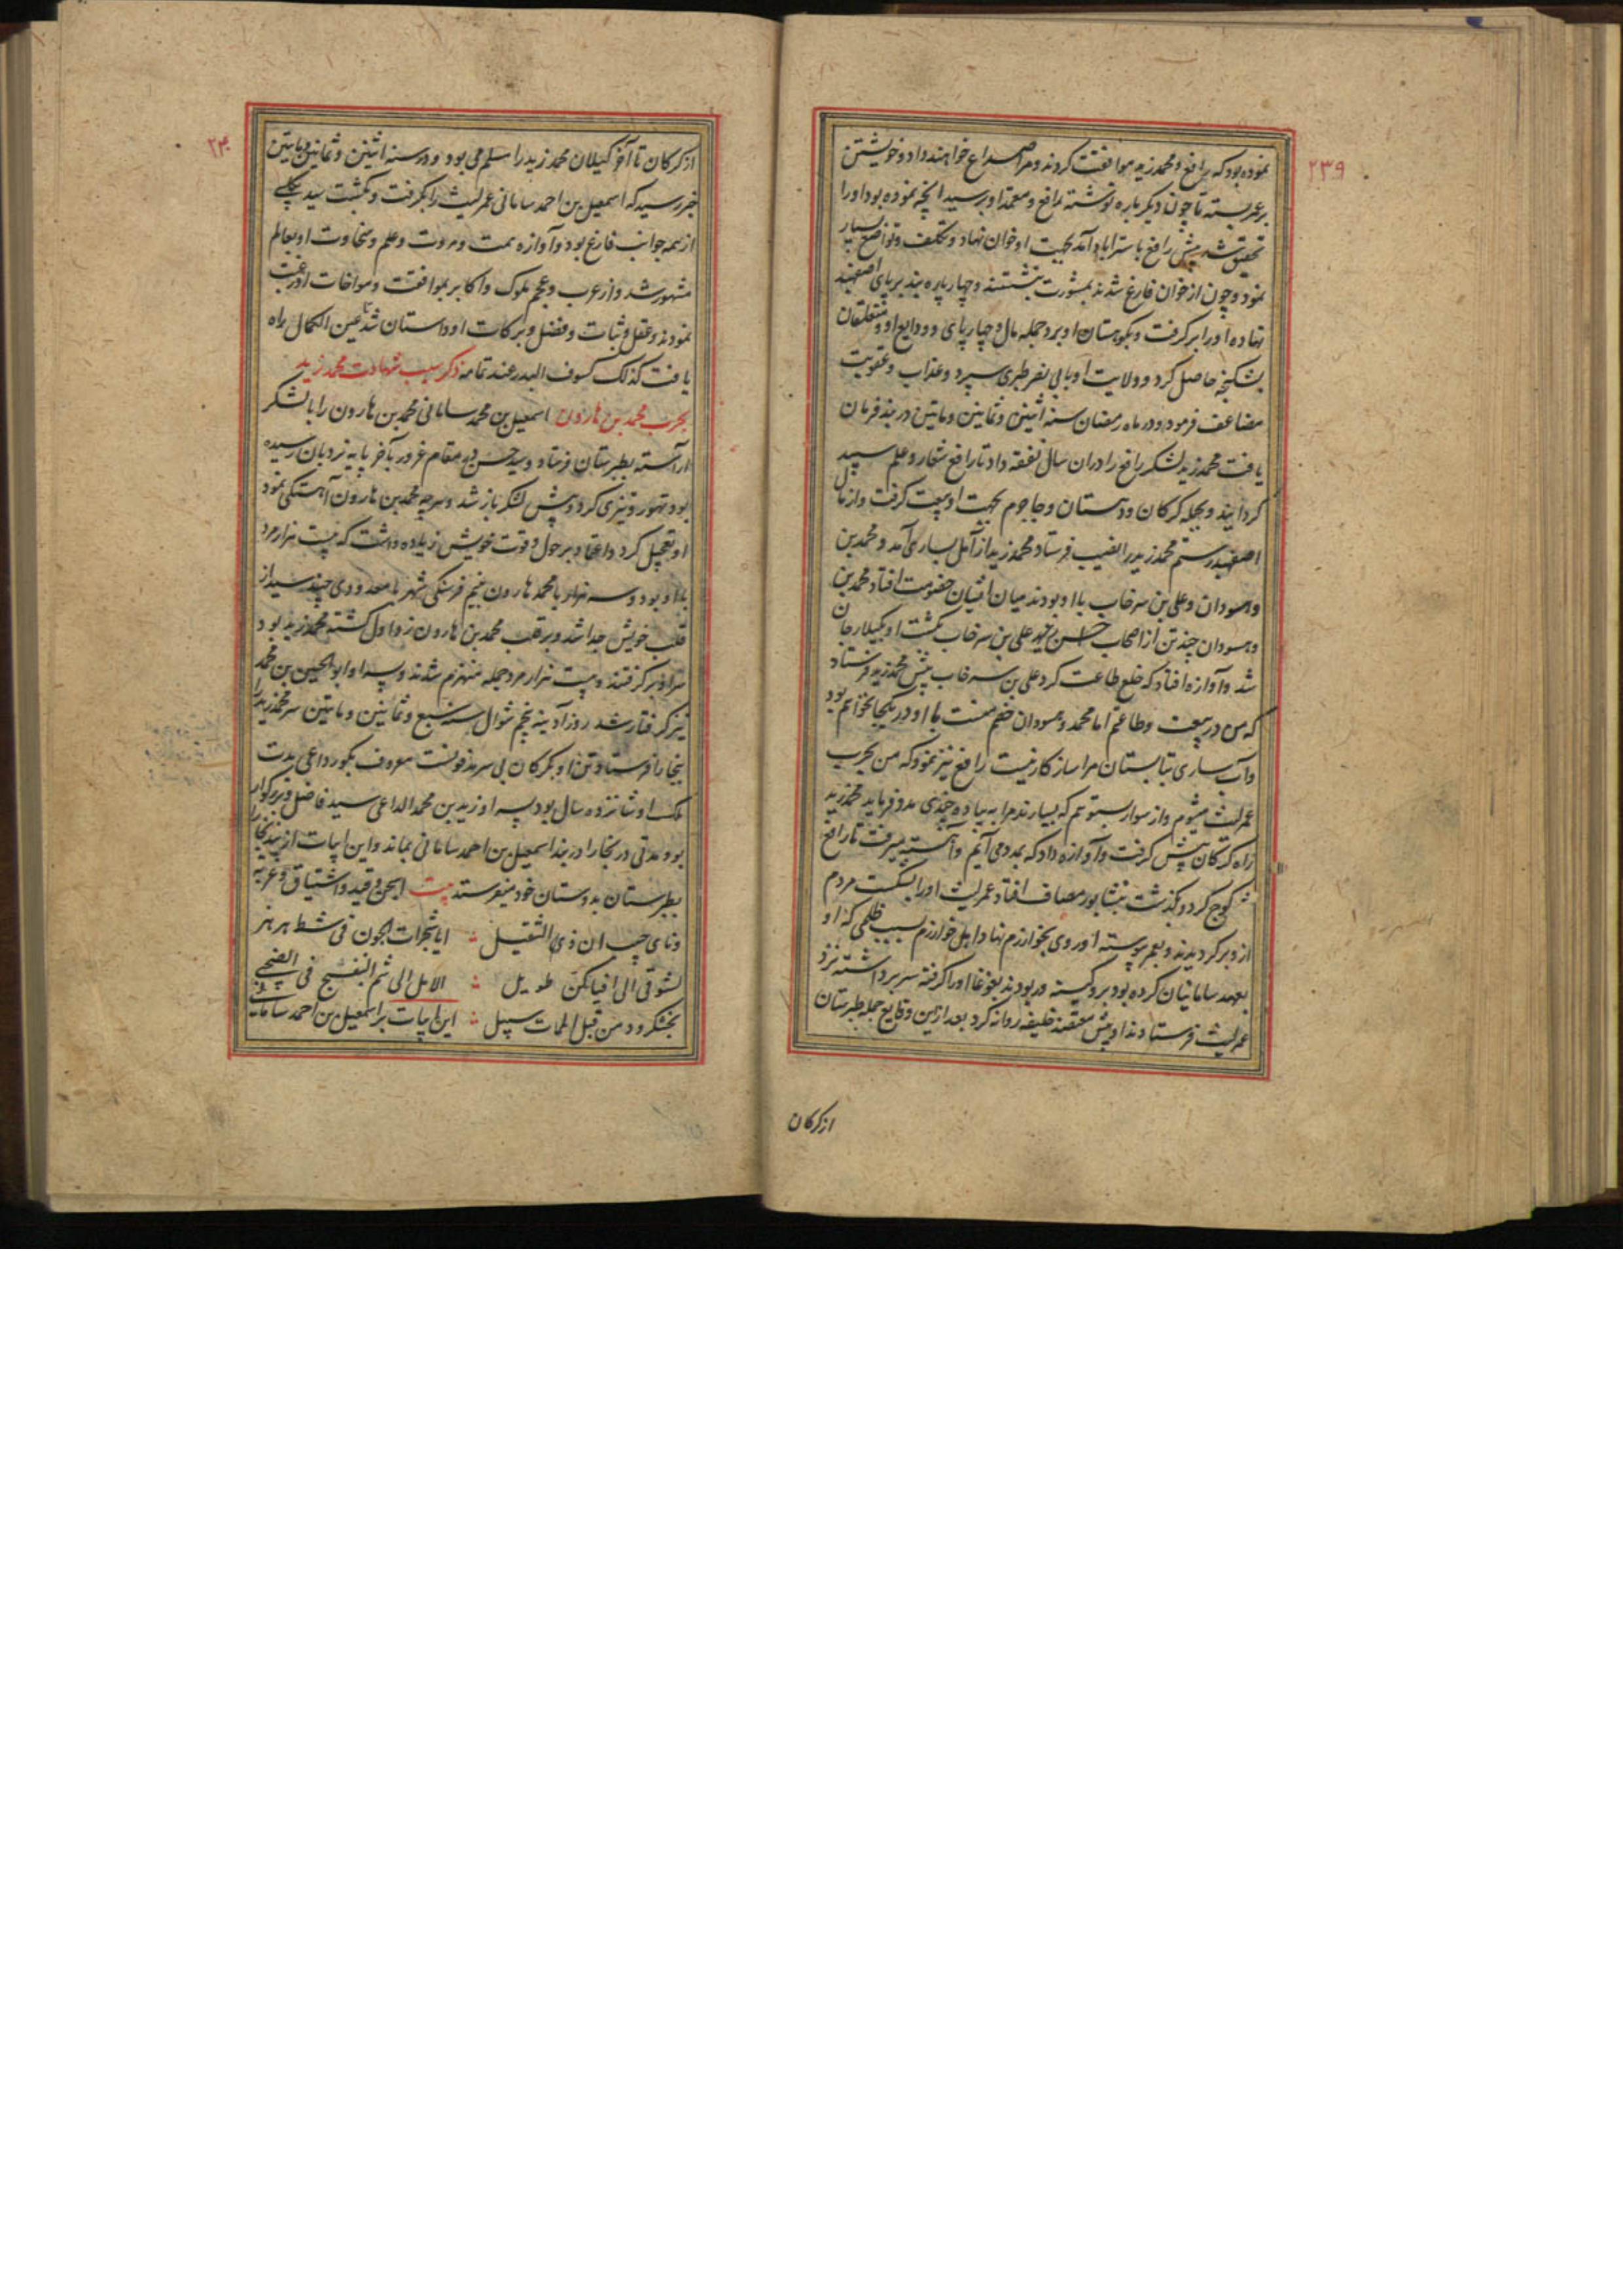 ۲۳۹
نموده بود که رافع و محمد زید موافقت کردند و مرا صداع خواهند داد و خویشتن
بر عمر بسته تا چون دیگر باره نوشته رافع و معتمد او برسید آنچه نموده بود او را
تحقیق شد پیش رافع باستراباد آمد بجهت او خوان نهاد و تکلف و تواضع بسیار
نمود و چون از خوان فارغ شدند بمشورت بنشستند و چهار پاره بند بر پای اصفهبد
نهاده او را بر گرفت و بکوهستان او برد جمله مال و چهارپای و ودایع او و متعلقان
بشکنجه حاصل کرد و ولایت او بابی نصر طبری سپرد و عذاب و عقوبت
مضاعف فرمود و در ماه رمضان سنه اثنین و ثمانین و مایتین در بند فرمان
یافت محمد زید لشکر رافع را در آن سال نفقه داد تا رافع شعار و علم سپید
گردانید و بجمله گرگان و دهستان و جاجرم بجهت او بیعت گرفت و از مال
اصفهبد رستم محمد زید را نصیب فرستاد محمد زید از آمل بساری آمد و محمد بن
وهسودان و علی بن سرخاب با او بودند میان ایشان خصومت افتاد محمد بن
وهسودان چند تن از اصحاب علی بن سرخاب بکشت او بگیلارجان
شد و آوازه افتاد که خلع طاعت کرد علی بن سرخاب پیش محمد زید فرستاد
که من در بیعت و طاعتم اما محمد وهسودان خصم منست با او در یکجا نخواهم بود
و آب ساری بتابستان مرا سازگار نیست رافع نیز نمود که من بحرب
عمر لیث میشوم و از سوار بستوهم که بسیارند مرا به پیاده چندی مدد فرماید محمد زید
راه گرگان پیش گرفت و آوازه داد که بمدد می آیم و آهسته میرفت تا رافع
کوچ کرد و بگذشت بنشابور مصاف افتاد عمر لیث او را بشکست مردم
ازو بر گردیدند و بعمر پیوسته او روی بخوارزم نهاد اهل خوارزم بسبب ظلمی که او
بعهد سامانیان کرده بود برو کینه ور بودند بغوغا او را گرفته سر برداشته نزد
عمر لیث فرستادند او پیش معتضد خلیفه روانه کرد بعد ازین وقایع جمله طبرستان
از گرگان
۲۴۰
از گرگان تا آخر گیلان محمد زید را مسلم می بود و در سنه اثنین و ثمانین و مایتین
خبر رسید که اسمعیل بن احمد سامانی عمر لیث را بگرفت و بکشت سید بکلی
از همه جوانب فارغ بود و آوازه همت و مروت و علم و سخاوت او بعالم
مشهور شد و از عرب و عجم ملوک و اکابر بموافقت و مواخات او رغبت
نمودند و عقل و ثبات و فضل و برکات او داستان شد عین الکمال راه
یافت کذلک کسوف البدر عند تمامه ذکر سبب شهادت محمد زید
بحرب محمد بن هارون اسمعیل بن محمد سامانی محمد بن هارون را با لشکر
آراسته بطبرستان فرستاد و سید مقام غرور بآخر پایه نردبان رسیده
بود تهور و تیزی کرد و پیش لشکر باز شد و هر چه محمد بن هارون آهستگی نمود
او تعجیل کرد و اعتماد بر حول و قوت خویش زیاده داشت که بیست هزار مرد
با او بود و سه هزار با محمد هارون بنیم فرسنگی شهر با معدودی چند سید از
قلب خویش جدا شد و بر قلب محمد بن هارون زد اول کشته محمد زید بود
سر او بر گرفتند و بیست هزار مرد جمله منهزم شدند و پسر او ابو الحسین بن محمد
نیز گرفتار شد روز آدینه پنجم شوال سنه سبع و ثمانین و مایتین سر محمد زید را
ببخارا فرستاد و تن او بگرگان بی سر مدفونست معروف بگور داعی مدت
ملک او شانزده سال بود پسر او زید بن محمد الداعی سید فاضل و بزرگوار
بود مدتی در بخارا در بند اسمعیل بن احمد سامانی بماند و این ابیات از بند بخارا
بطبرستان بدوستان خود میفرستد بیت اسجن و قید و اشتیاق و غربه
و نای حبیب ان ذی الثقیل ؞ ایا شجرات الجون فی شط هرهز
لشوقی الی افیائکن طویل ؞ الا هل الی شم البنفسج فی الضحی
بخشکرود من قبل الممات سبیل ؞ این ابیات بر اسمعیل بن احمد سامانی